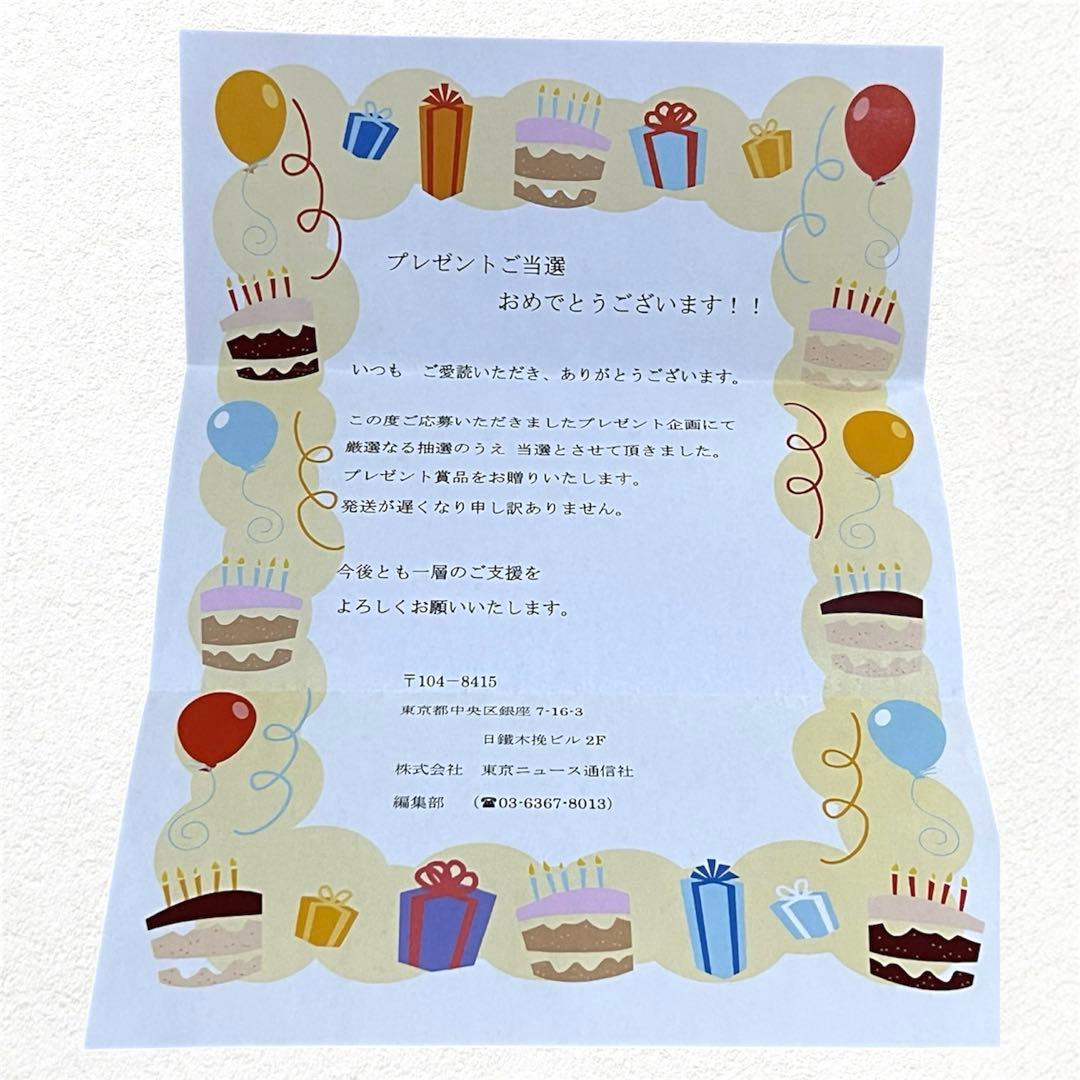 プレゼントご当選
おめでとうございます！！
いつも　ご愛読いただき、ありがとうございます。
この度ご応募いただきましたプレゼント企画にて
厳選なる抽選のうえ 当選とさせて頂きました。
プレゼント賞品をお贈りいたします。
発送が遅くなり申し訳ありません。
今後とも一層のご支援を
よろしくお願いいたします。
〒104－8415
東京都中央区銀座 7-16-3
日鐵木挽ビル 2F
株式会社　東京ニュース通信社
編集部　（☎03-6367-8013）